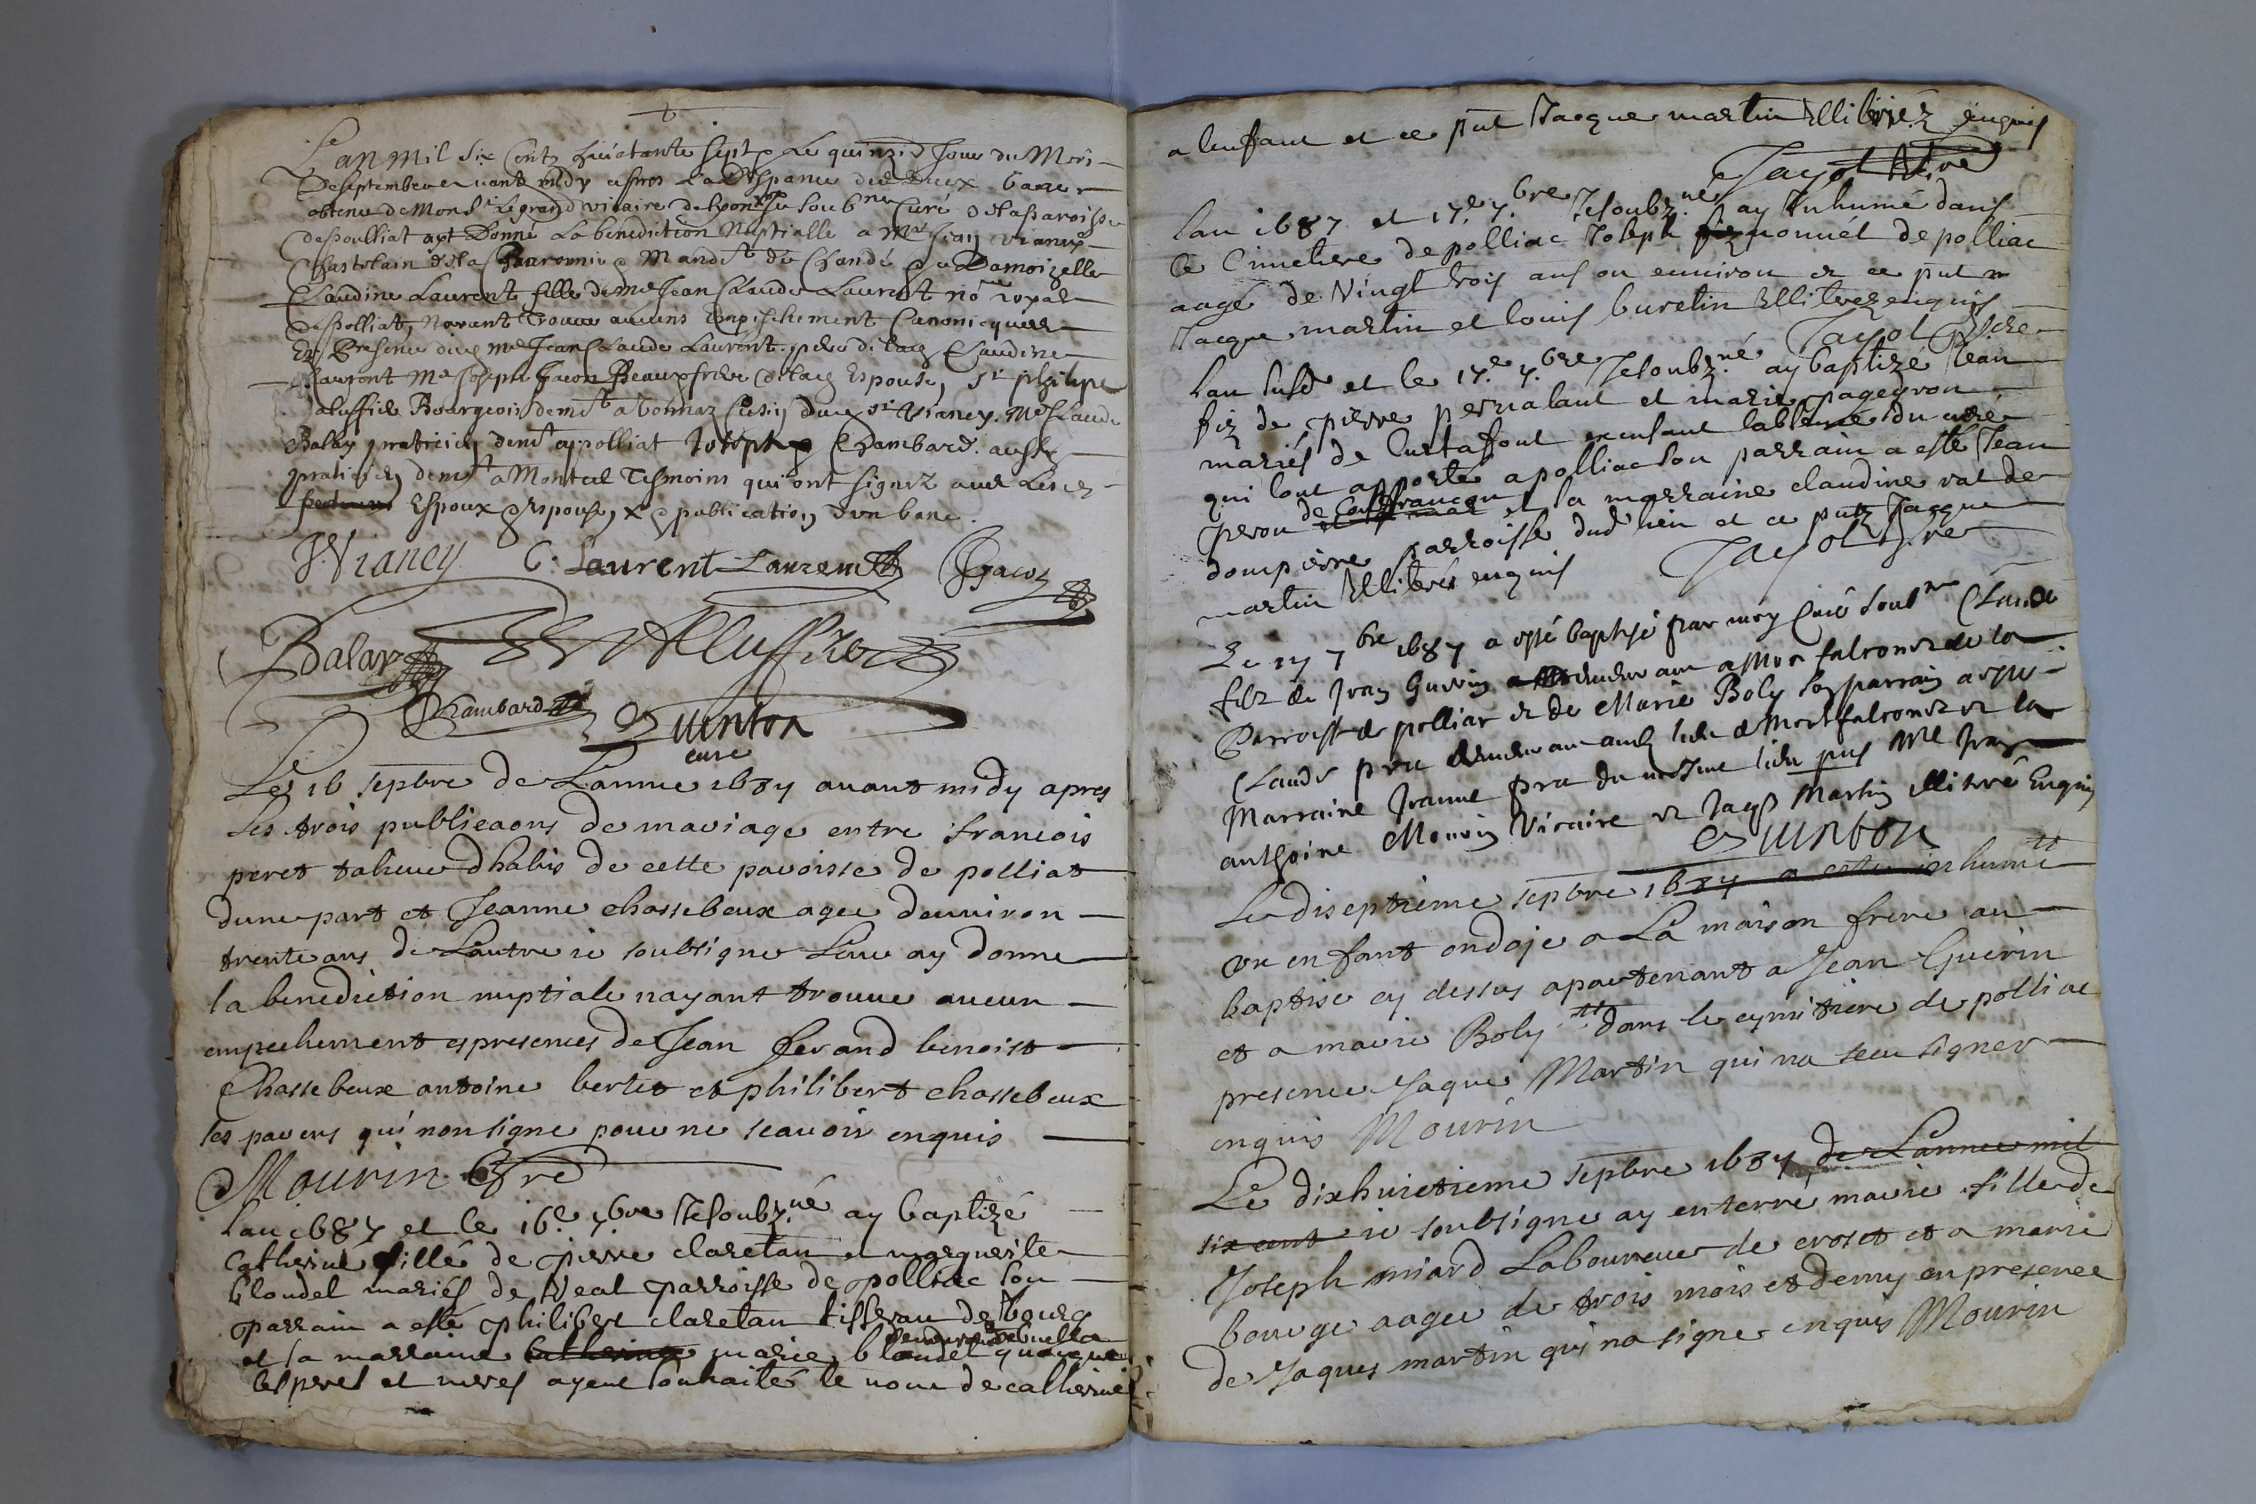 L'an mil six Centz huictante sept & Le quinzie Jour du Mois
De septembre auant midy apres La Dispance de Deux bancz
obtenu de Monsr Le grand vicaire de Lyon Je soubne Curé de La Paroisse
de Poulliat ayt Donné La benediction Nuptialle a Mre Jean Vianey
Chastelain de la & Mandt de Chandé & a Damoizelle
Claudine Laurent fille de Me Jean Claude Laurent nore royal
de Polliat, Nayant Trouue aucuns Empeschement Canonicques
En Presence dud Me Jean Claude Laurent pere de lad Claudine
Laurent Me Joseph Jacon Beauxfrere de lad Espouse, sr philipe
aluffier Bourgeois demt a Cusin dud sr Vianey, Me Claude
Balay praticien demt a polliat Joseph Chambard aussy
praticien demt a Montcel Tesmoins qui ont signez auec Lesd
Espoux & Espouse, & publication d'vn banc.
J. Vianey C. Laurent Laurent J Jacon
Balay Alluffier
Chambard Guinton
curé
Le 16 sepbre de Lannee 1687 auant midy apres
les trois publicaons de mariage entre francois
peret dhabis de cette paroisse de polliat
dune part et Jeanne chassebeux agee denuiron
trente ans de Lautre ie soubsigne ay donne
la benediction nuptiale nayant trouue aucun
empechement es presences de Jean ferand benoist
Chassebeux antoine bertet et philibert chassebeux
ses parens qui non signe pour ne scauoir enquis
Mourin pre
Lan 1687 et le 16e 7bre Je soubzné ay baptizé
Catherine fille de pierre claretan et marguerite
blondel mariés de Veal parroisse de polliac son
parrain a esté philibert claretan tisseran de bourg
et sa marraine Catherine marie blondel quoique
les peres et meres ayent souhaité le nom de catherine
a lenfant et ce pnt Jacque martin Illitéréz enquis
Jayol Vire
Lan 1687 et 17e 7bre Je soubzné ay Inhumé dans
le Cimetiere de polliac Joseph fiz nonnél de polliac
aagé de Vingt trois ans ou enuiron et ce pnt
Jacque martin et louis buretin Illiterez enquis
Jayol Vicre
Lan susd et le 17e 7bre Je soubzné ay baptizé Jean
fiz de pierre pernalaut et marie pageyron
mariés de Curtafont en labsence du curé
qui lont apporté a polliac son parrain a esté Jean
peron de Confrancon et sa marraine claudine rat de
dompierre parroisse dud lieu et ce pntz Jacque
martin Illiterés enquis Jayol Vire
Le 17 7bre 1687 a esté baptisé par moy Curé soubne Claude
filz de Jean Guerin demeurant a Monfalconet de la
Parroisse de polliac et de Marie Boly son parrain a esté
Claude pra demeurant aud lieu de Montfalconet et la
Marraine Jeanne pra du mesme lieu pns Mre Jean
anthoine Mourin Vicaire et Jaqs Martin illiteré Enquis
Guinton
Le diseptieme sepbre 1687 a este inhumé
vn enfant ondoje a La maison frere au
baptise cy dessus apartenant a Jean Guerin
et a marie Boly dans le cymitiere de polliac
presence Jaque Martin qui na sceu signer
enquis Mourin
Le dixhuictieme sepbre 1687 de Lannee mil
six cent ie soubsigne ay enterré marie fille de
Joseph miard Laboureur de croset et a marie
bouge aagee de trois mois et demy en presence
de Jaques martin qui na signe enquis Mourin